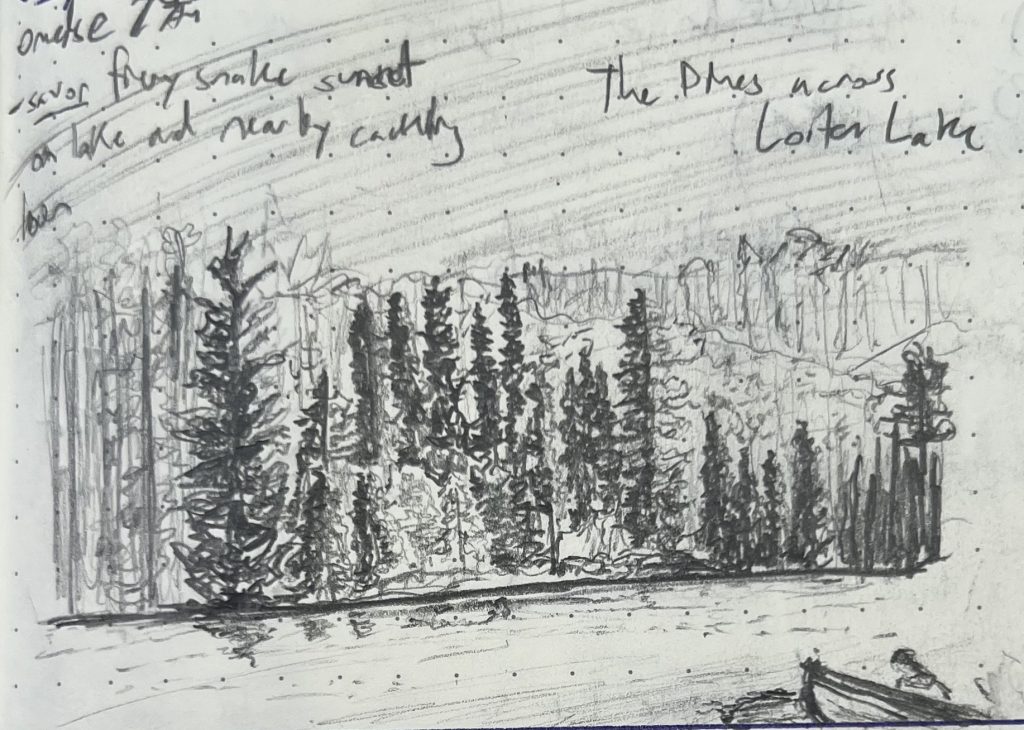 savor fiery snake sunset
on lake and nearby cackling
loon
The Pines across
Loiter Lake